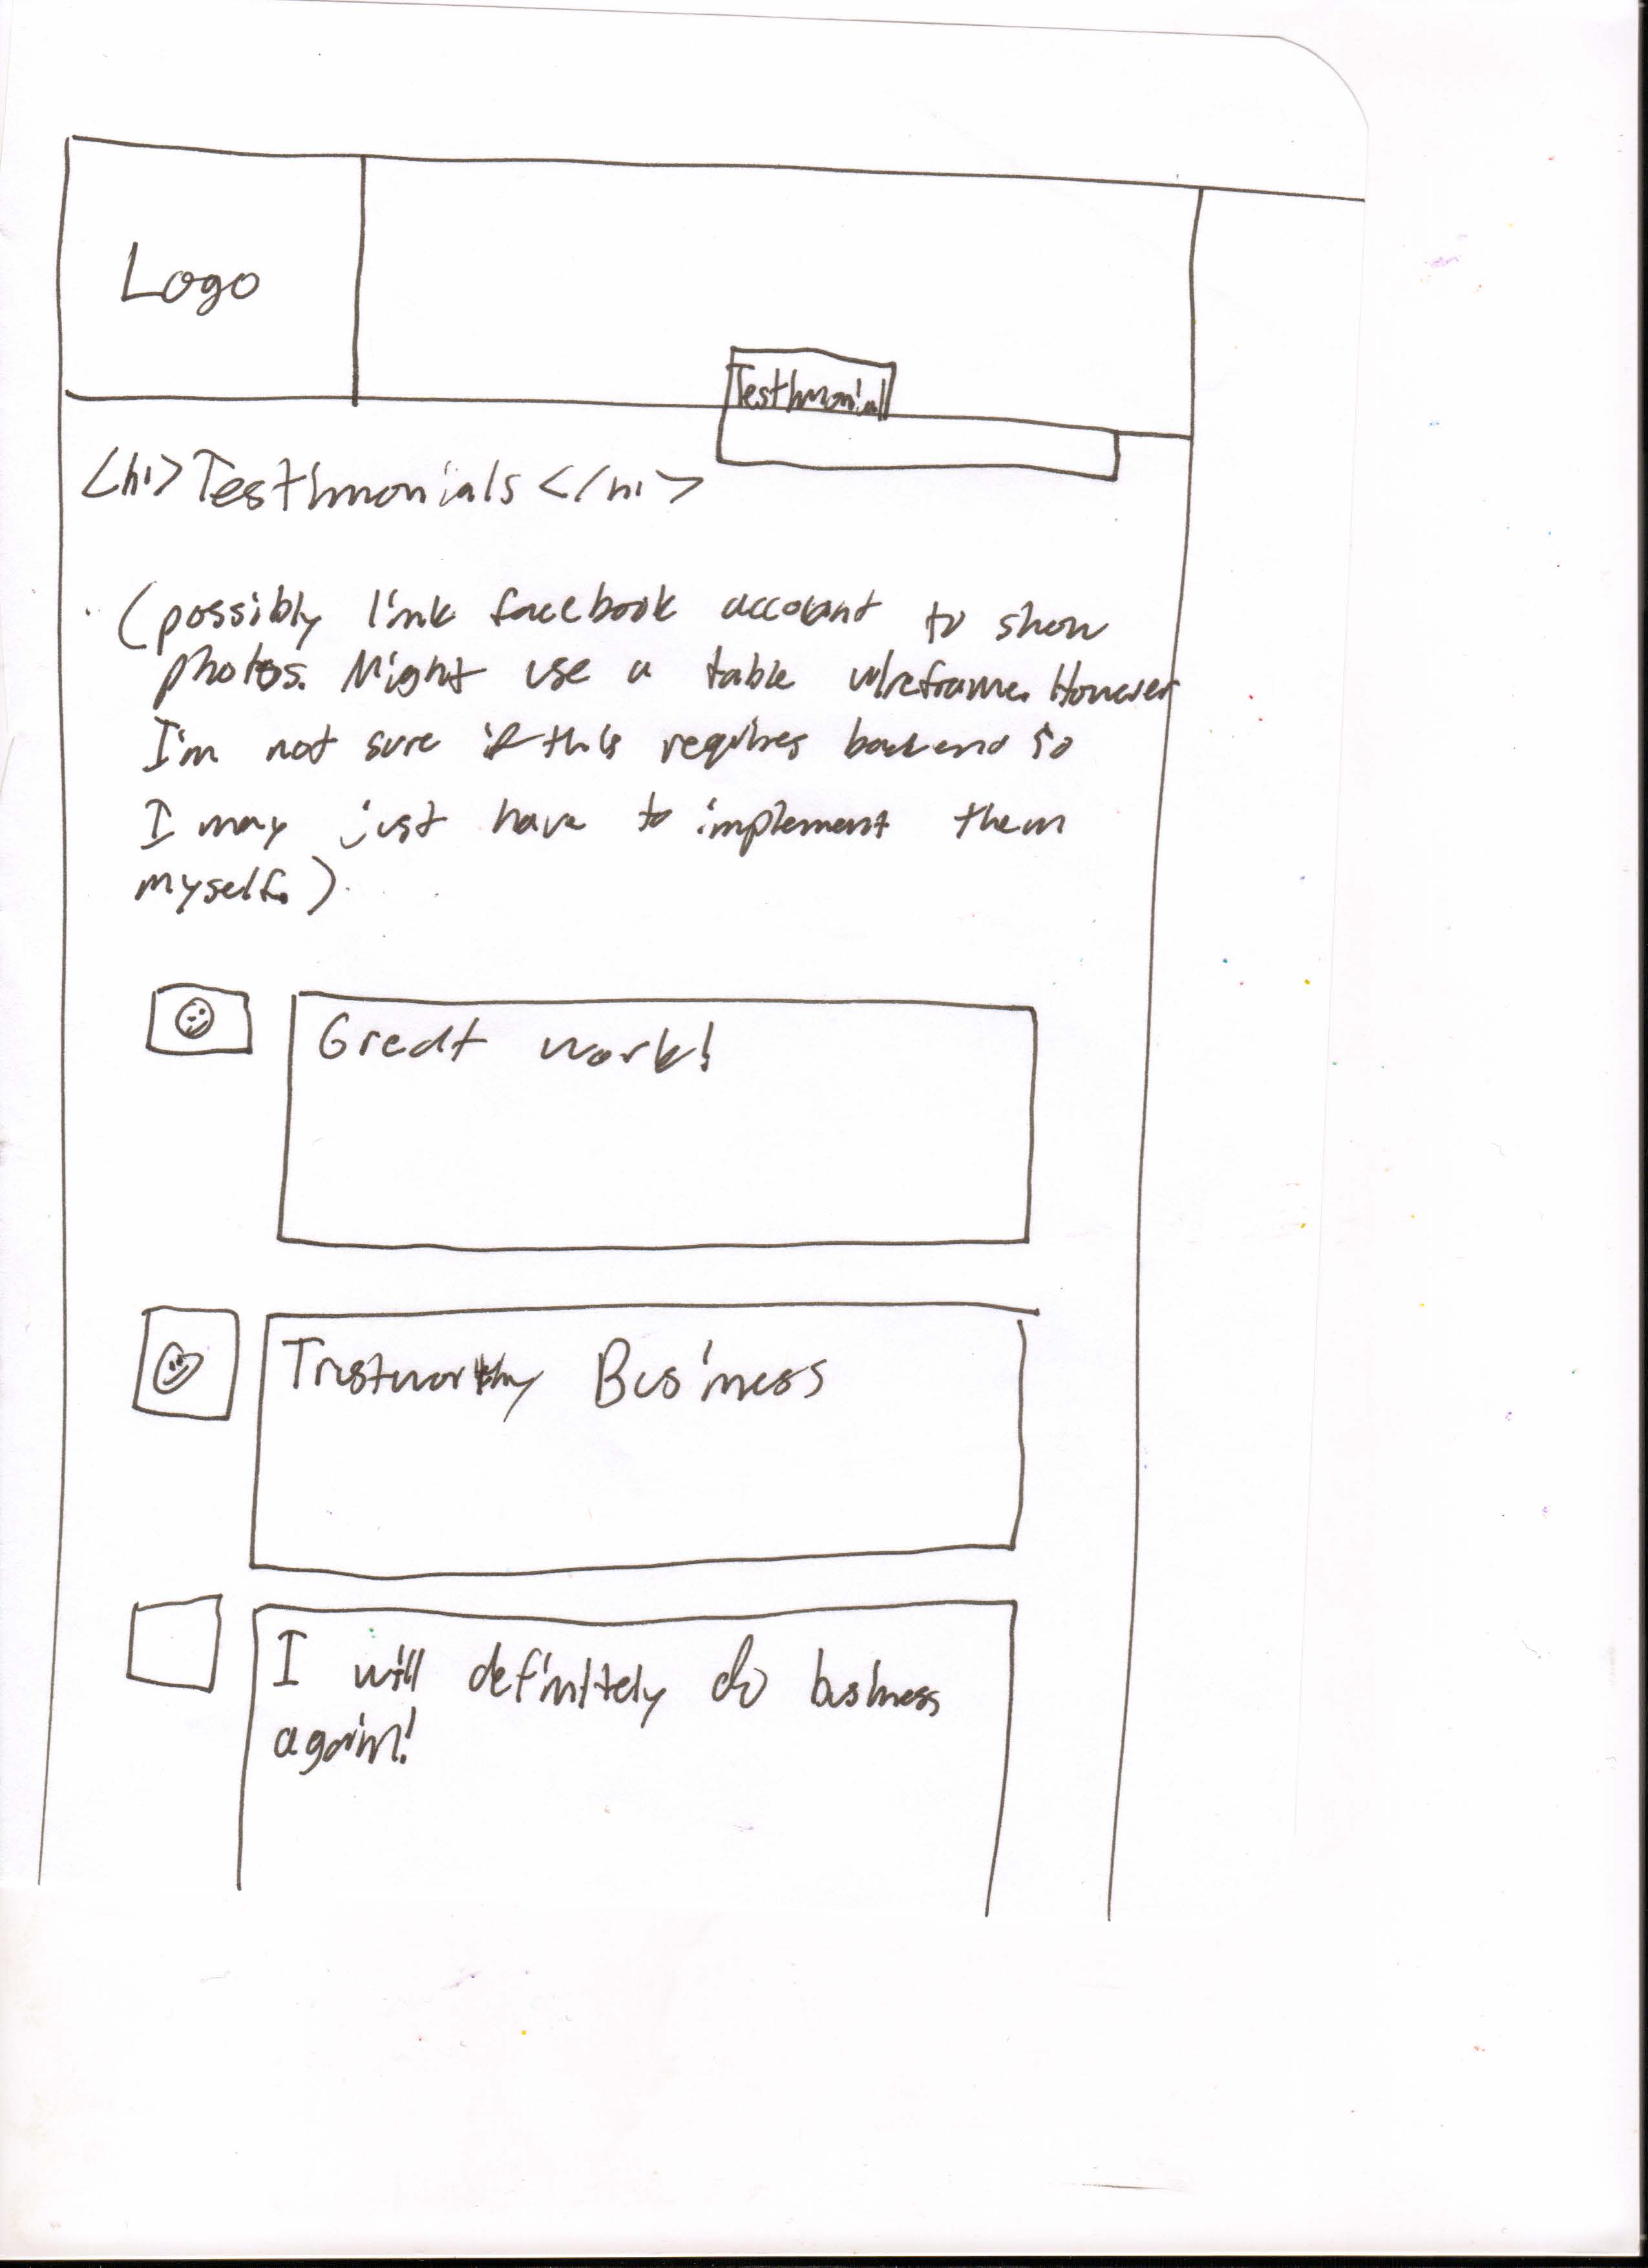 Logo
Testimonial
<h1>Testimonials</h1>
(possibly link facebook account to show
photos. Might use a table wireframe. However
I'm not sure if this requires backend so
I may just have to implement them
myself.)
Great work!
Trustworthy Business
I will definitely do business
again!